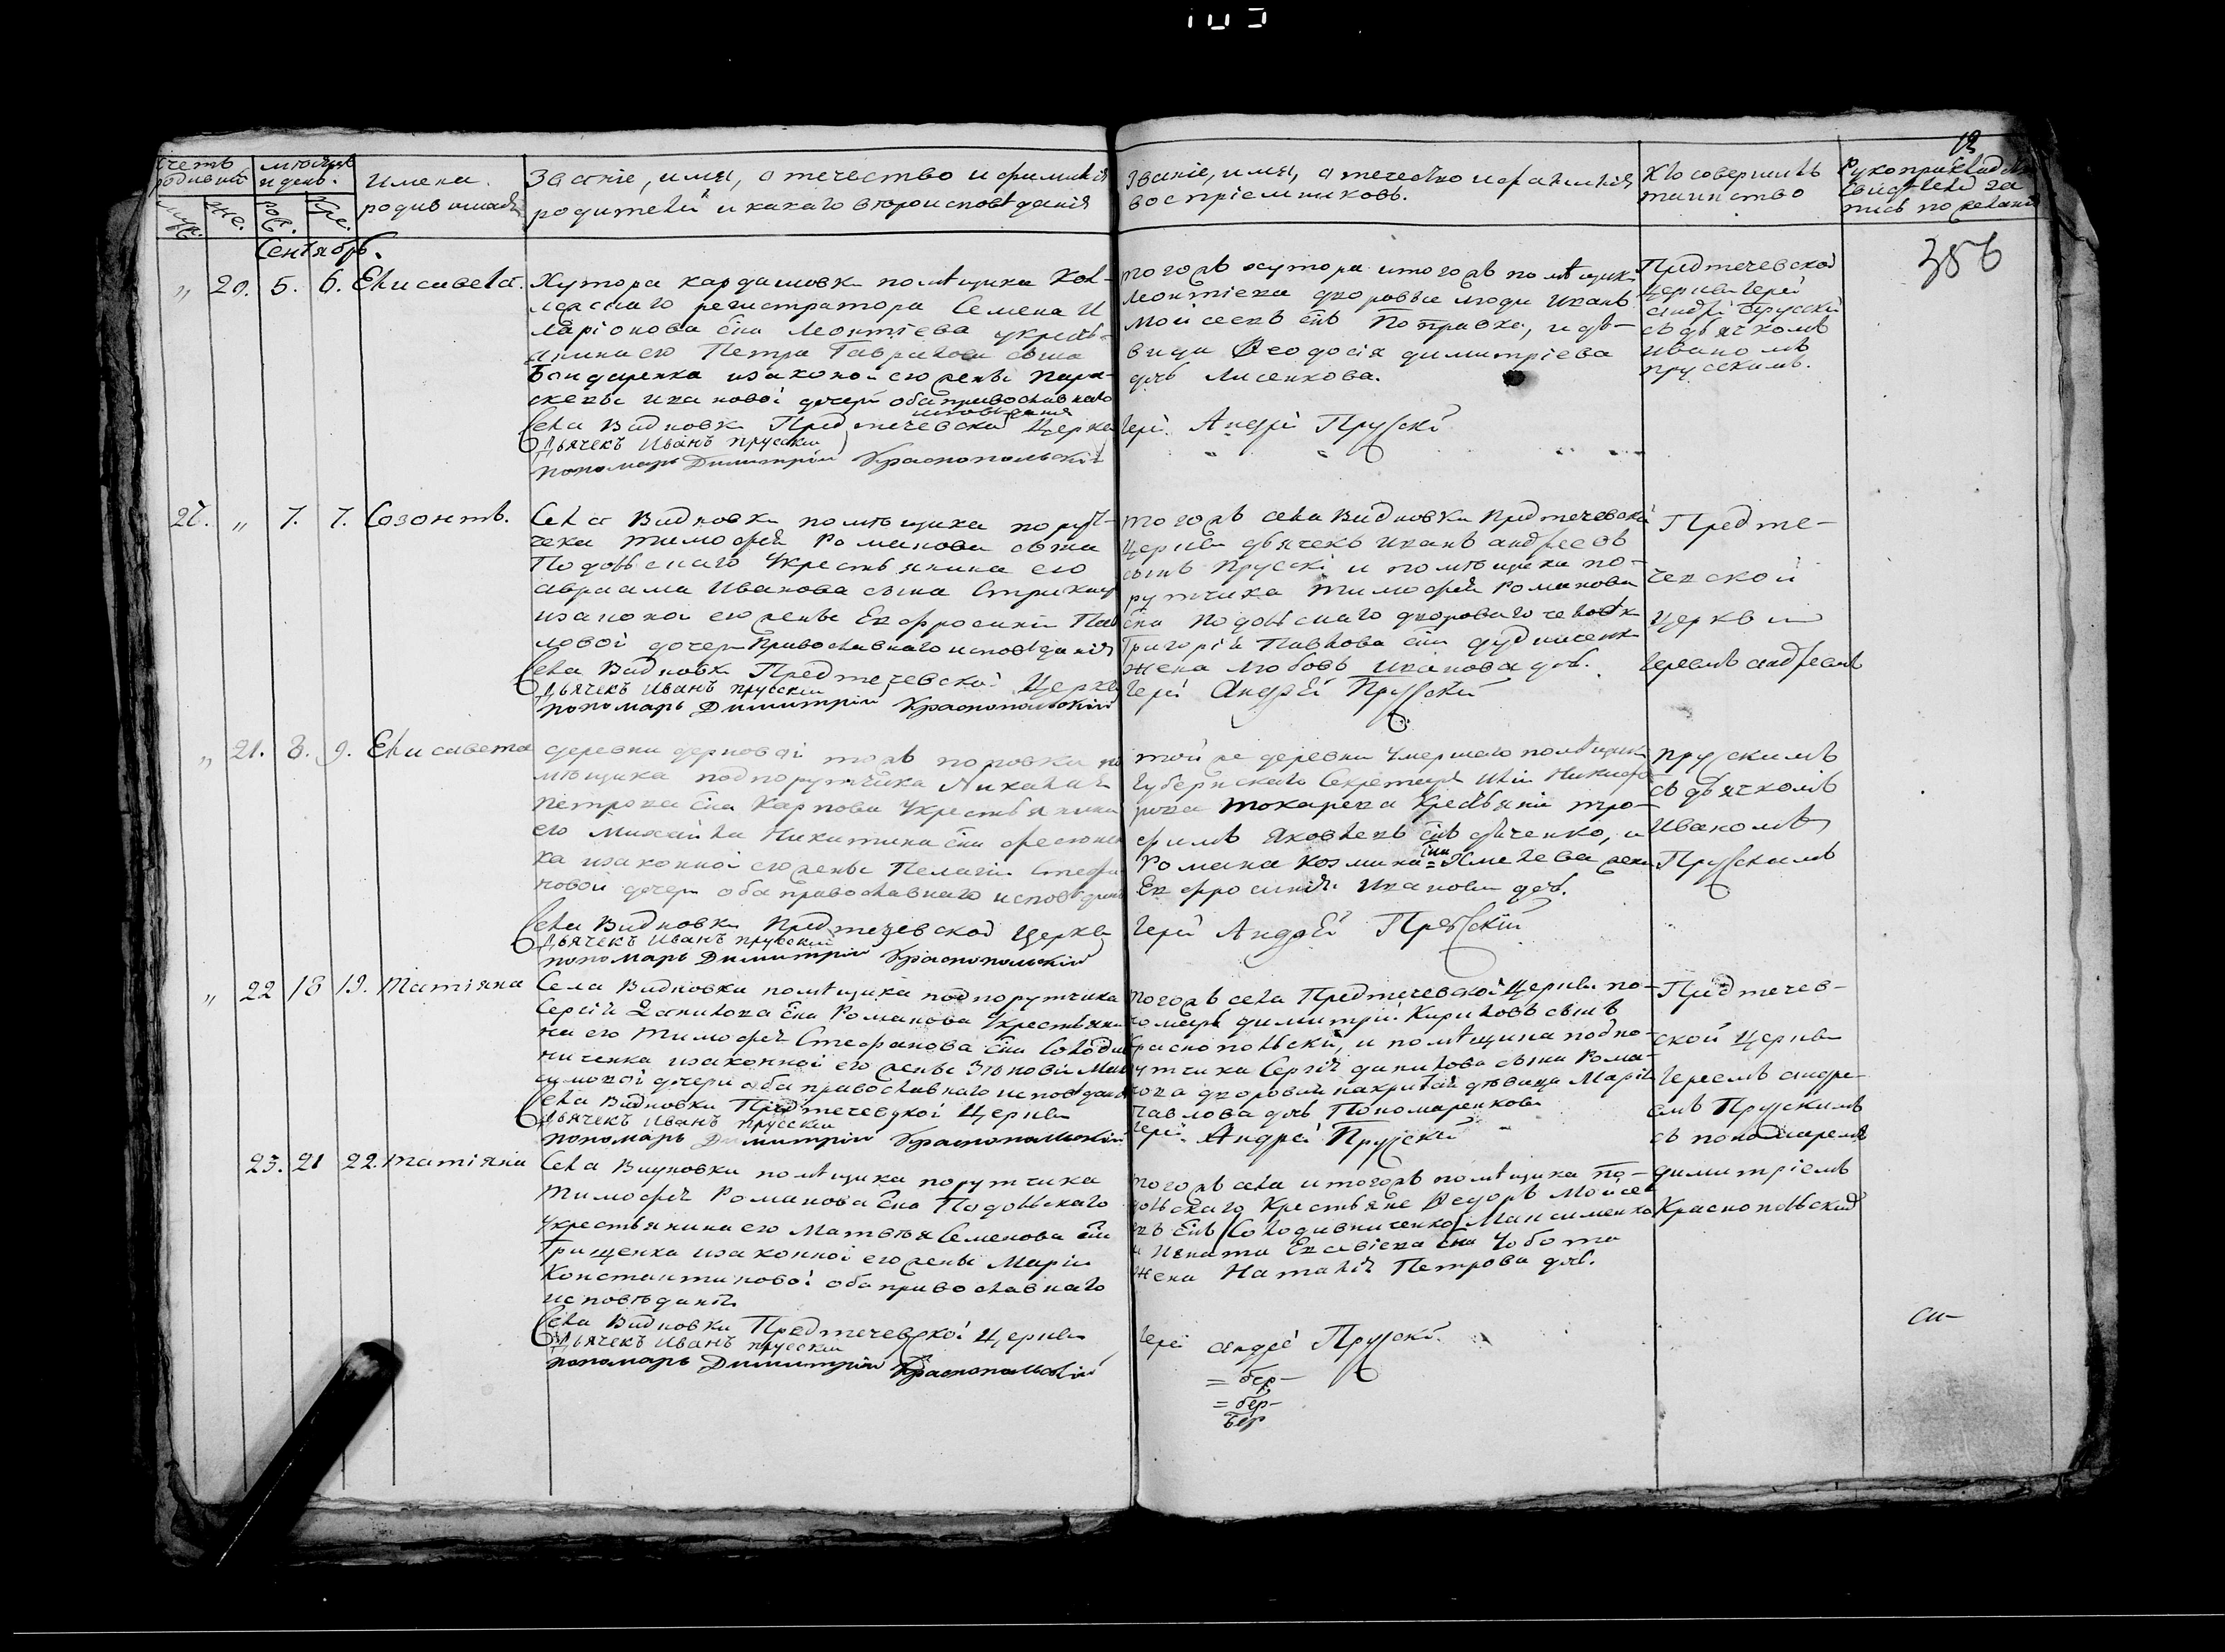 12
Счетъ родившихся
мѣсяцъ и день.
Имена родившихся
Званіе, имя, отечество и фамилія
родителей и какаго вѣроисповѣданія
Званіе, имя, отечество и фамилія
воспріемниковъ.
Кто совершилъ
таинство
Рукоприкладство
свидетелей за
пись по желанію
муж. же. рож. кре.
Сентябрь.
356
„ 20. 5. 6. Елисавета.
Хутора Кардашовки помѣщика Кол-
лежскаго регистратора Семена И
ларіонова сна Леонтіева укресть-
янина его Петра Гаврилова сына
Бондаренка изаконой его жены Пара-
скевы Ивановой дочери оба православнаго
исповѣданія
Села Видновки Предтечевской Церкви
Дьячекъ Иванъ Прусскій
пономарь Димитрій Краснопольскій
тогожъ хутора итогожъ помѣщика
Леонтіева дворовые люди Иванъ
Моисеевъ снъ Поправка, и дѣ-
вица Ѳеодосія Димитріева
дчь Лисенкова.
Іерей Андрей Прусскій
Предтечевской
Церкви Іерей
Андрей Прусскій
съ дьячкомъ
Иваномъ
Прусскимъ.
22. „ 7. 7. Созонтъ.
Села Видновки помѣщика поруч-
чека Тимофея Романова сына
Подольскаго укрестьянина его
Авраама Иванова сына
изаконой его жены Евфросиніи Пав
ловой дочери Православнаго исповѣданія
Села Видновки Предтечевской Церкви
Дьячекъ Иванъ Прусскій
пономарь Димитрій Краснопольскій
тогожъ села Видновки Предтечевской
Церкви дьячекъ Иванъ Андреевъ
сынъ Прусскі и помѣщика по-
рутчика Тимофея Романова
сна Подольскаго двороваго человѣка
Григорія Павлова сна
жена Любовь Иванова дчь.
Іерей Андрей Прусскій
Предте-
чевской
Церкви
Іереемъ Андреемъ
„ 21. 8. 9. Елисавета
деревни Дерновой тожъ Поповки по
мѣщика подпорутчика Михаила
Петрова сна Карпова укрестьянина
его Михаила Никитина сна
ка изаконной его жены Пелагіи Стефа
новой дочери оба православнаго исповѣданія
Села Видновки Предтечевской Церкви
Дьячекъ Иванъ Прусскій
пономарь Димитрій Краснопольскій
той же деревни умершаго помѣщика
Губернскаго Секретаря Иліи Никифо
рова Токарева Крестьянин Тро-
фимъ Яковлевъ снъ, и
Романа Козмина сна жена
Евфросинія Иванова дчь.
Іерей Андрей Прусскій
Прусскимъ
съ дьячкомъ
Иваномъ
Прусскимъ
„ 22 18 19. Татіяна
Села Видновки помѣщика подпорутчика
Сергія Данилова сна Романова укрестьяни
на его Тимофея Стефанова сна Солодов
ниченка изаконной его жены Зѣновіи Мак
симовой дочери оба православнаго исповѣданія
Села Видновки Предтечевской Церкви
Дьячекъ Иванъ Прусскій
пономарь Димитрій Краснопольскій
тогожъ села Предтечевской Церкви по-
номарь Димитрій Кириловъ сынъ
Краснопольскій, и помѣщика подпо-
рутчика Сергія Данилова сына Рома-
нова дѣвица Марія
Павлова дчь Пономаренкова
Іерей Андрей Прусскій
Предтечев-
ской Церкви
Іереемъ Андре-
емъ Прусскимъ
съ пономаремъ
23. 21 22. Татіяна
Села Видновки помѣщика порутчика
Тимофея Романова сна Подольскаго
укрестьянина его Матвѣя Семенова сна
Грищенка изаконной его жены Маріи
Константиновой оба православнаго
исповѣданія
Села Видновки Предтечевской Церкви
Дьячекъ Иванъ Прусскій
пономарь Димитрій Краснопольскій
тогожъ села итогожъ помѣщика По-
дольскаго Крестьяне Ѳедоръ Моисе
евъ снъ Солодовниченко Максименко
и Игната Евсевіева сна Чобота
жена Наталія Петрова дчь.
Іерей Андрей Прусскій
Димитріемъ
Краснопольскимъ
= бер-
= бер-
бер